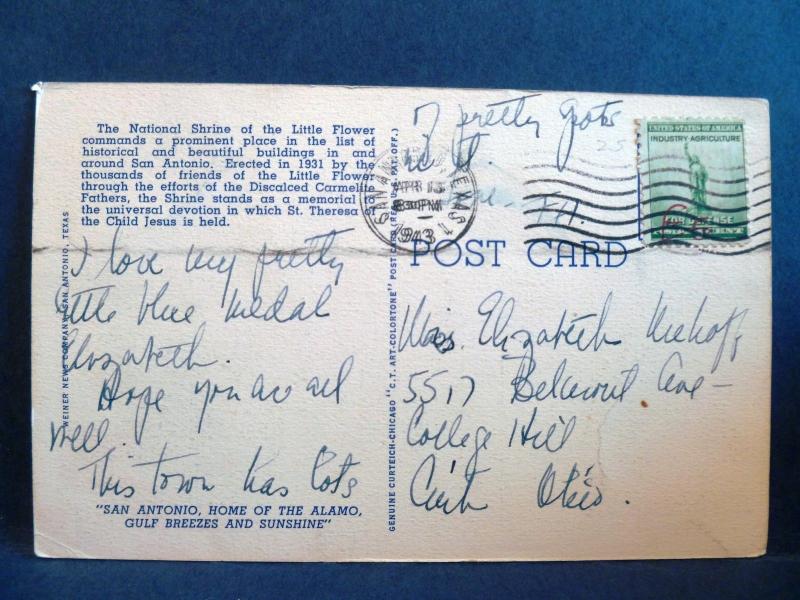 The National Shrine of the Little Flower
commands a prominent place in the list of
historical and beautiful buildings in and
around San Antonio. Erected in 1931 by the
thousands of friends of the Little Flower
through the efforts of the Discalced Carmelite
Fathers, the Shrine stands as a memorial to
the universal devotion in which St. Theresa of
the Child Jesus is held.
I love my pretty
little blue medal
Elizabeth.
Hope you are all
well.
This town has lots
"SAN ANTONIO, HOME OF THE ALAMO,
GULF BREEZES AND SUNSHINE"
WEINER NEWS COMPANY, SAN ANTONIO, TEXAS
GENUINE CURTEICH-CHICAGO "C.T. ART-COLORTONE" POST CARD (REG. U.S. PAT. OFF.)
pretty spots
SAN
APR 13
830 PM
1943
UNITED STATES OF AMERICA
INDUSTRY AGRICULTURE
FOR DEFENSE
POST CARD
Miss. Elizabeth
5517 Belmont Ave-
College Hill
Ohio.